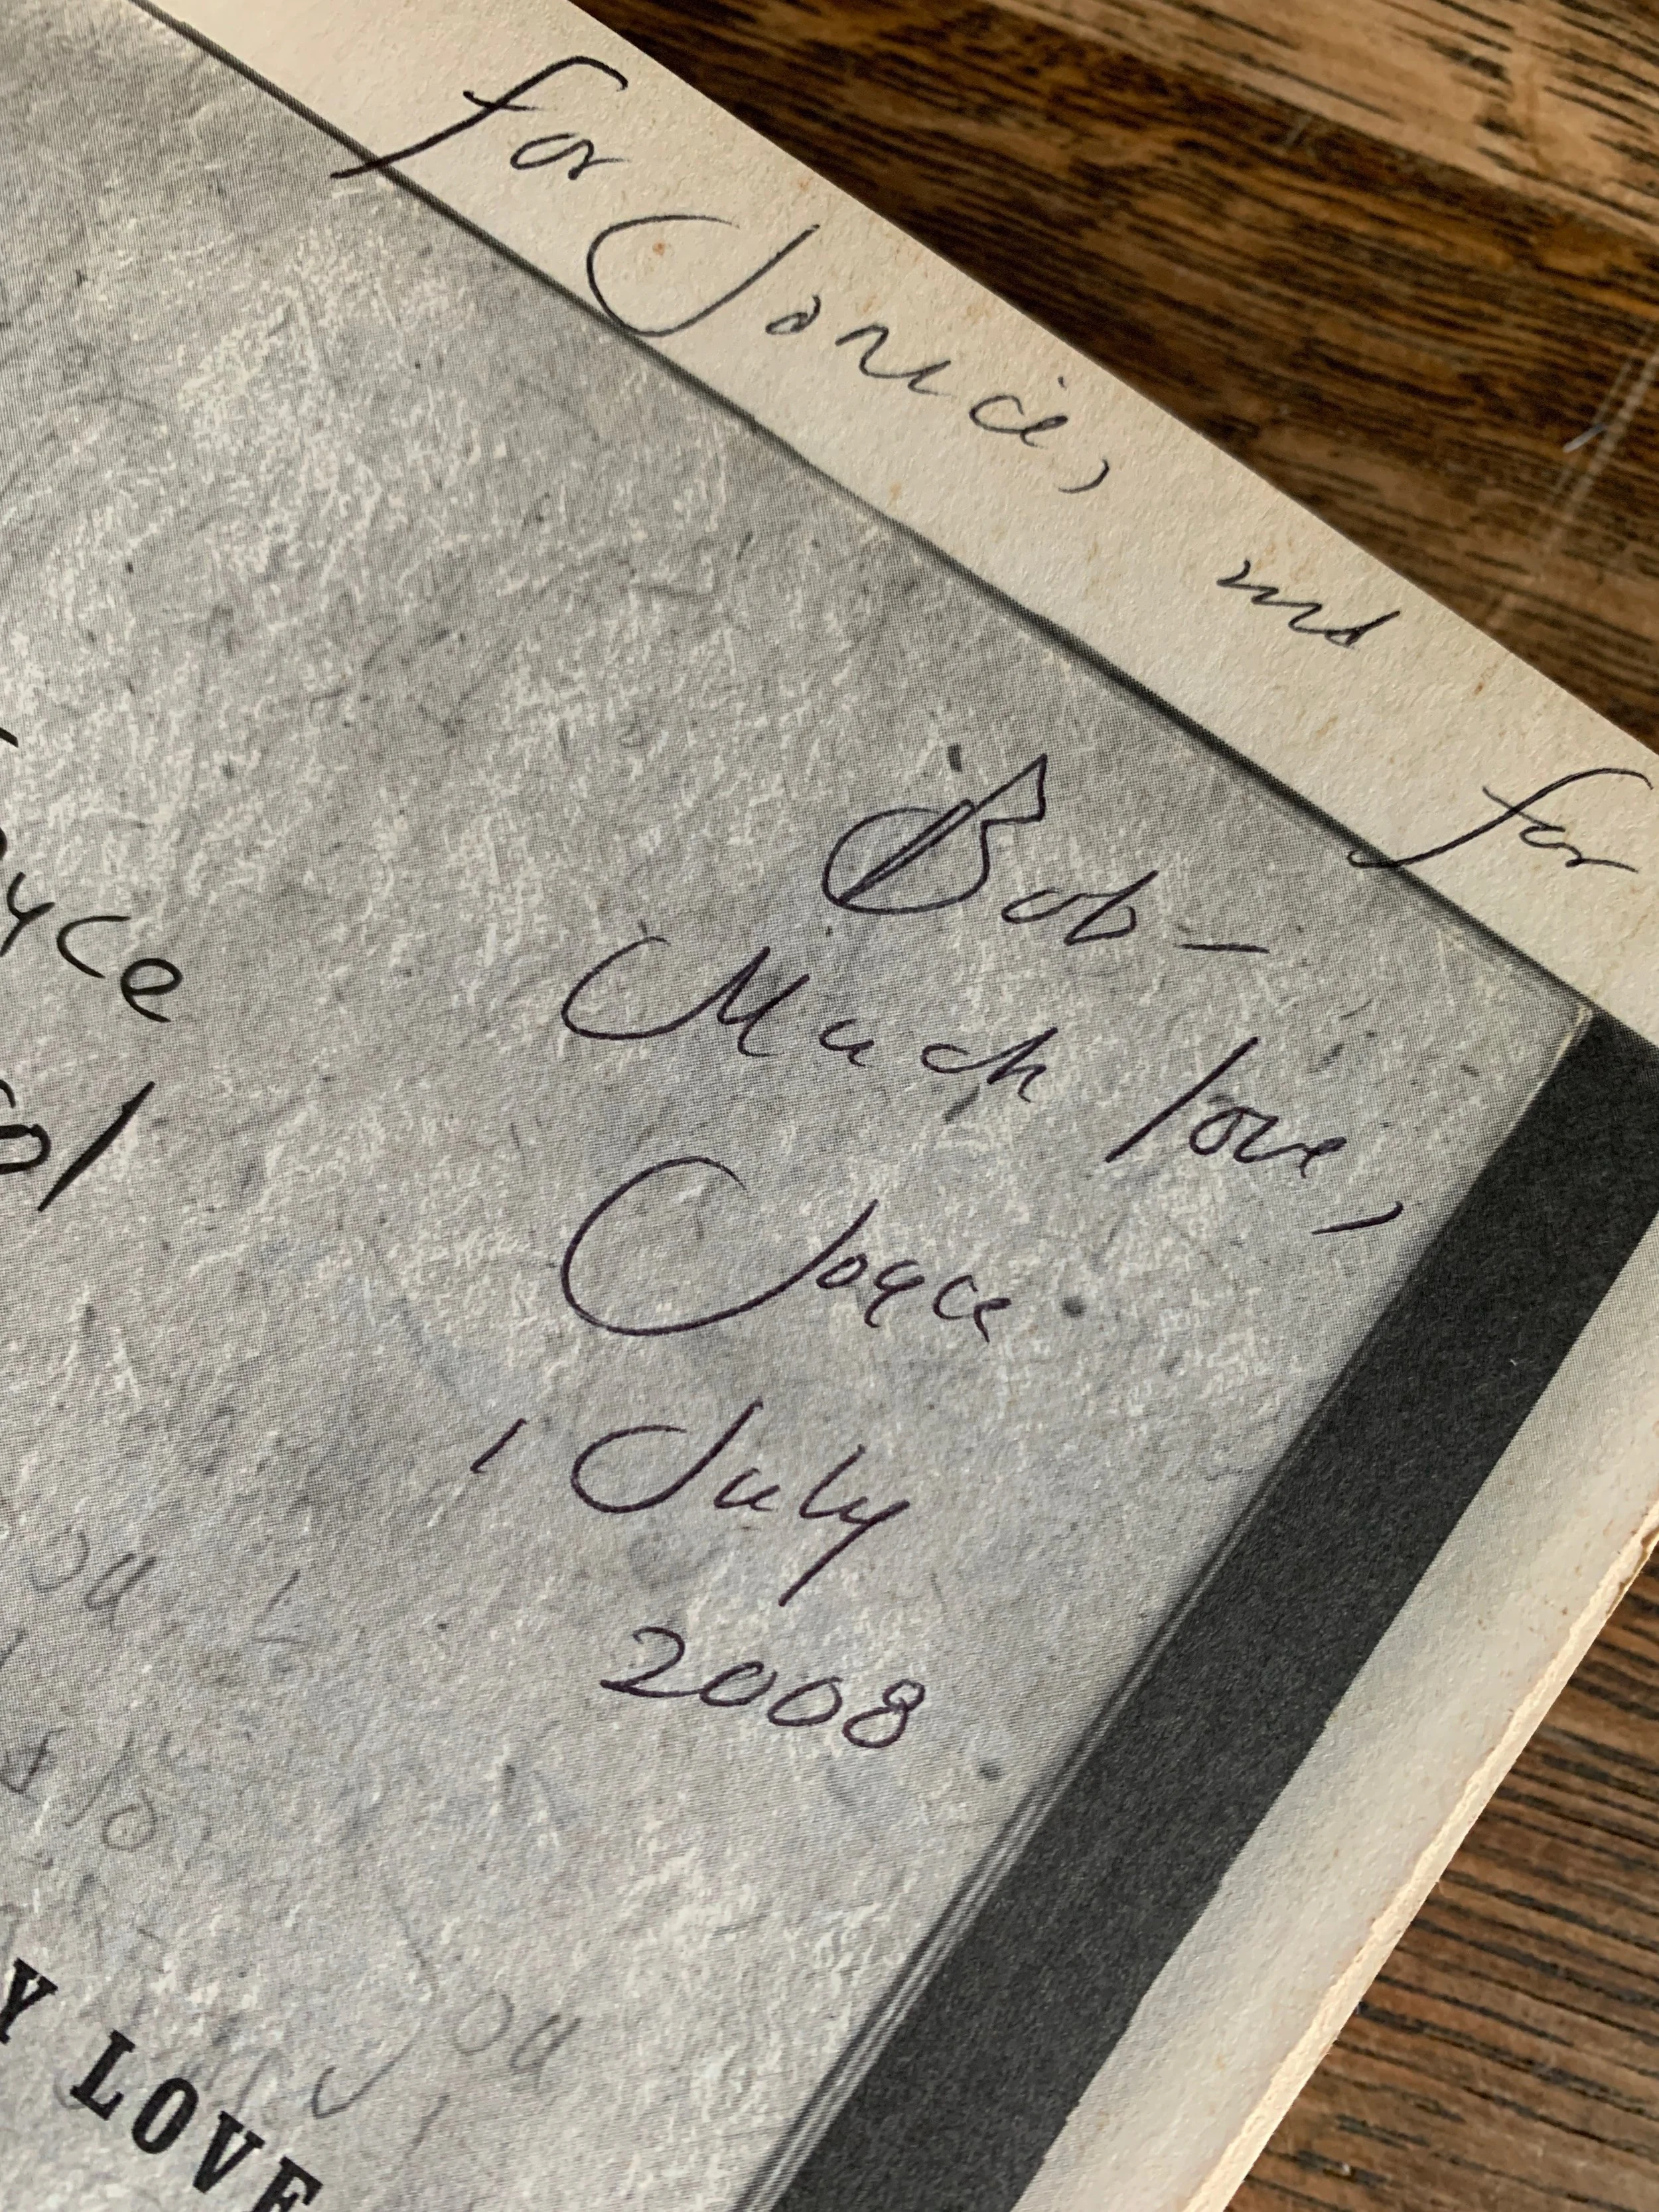 for Janice, and for
Bob –
Much love,
Joyce
1 July
2008
yce
ol
ou
ou
Y LOVE